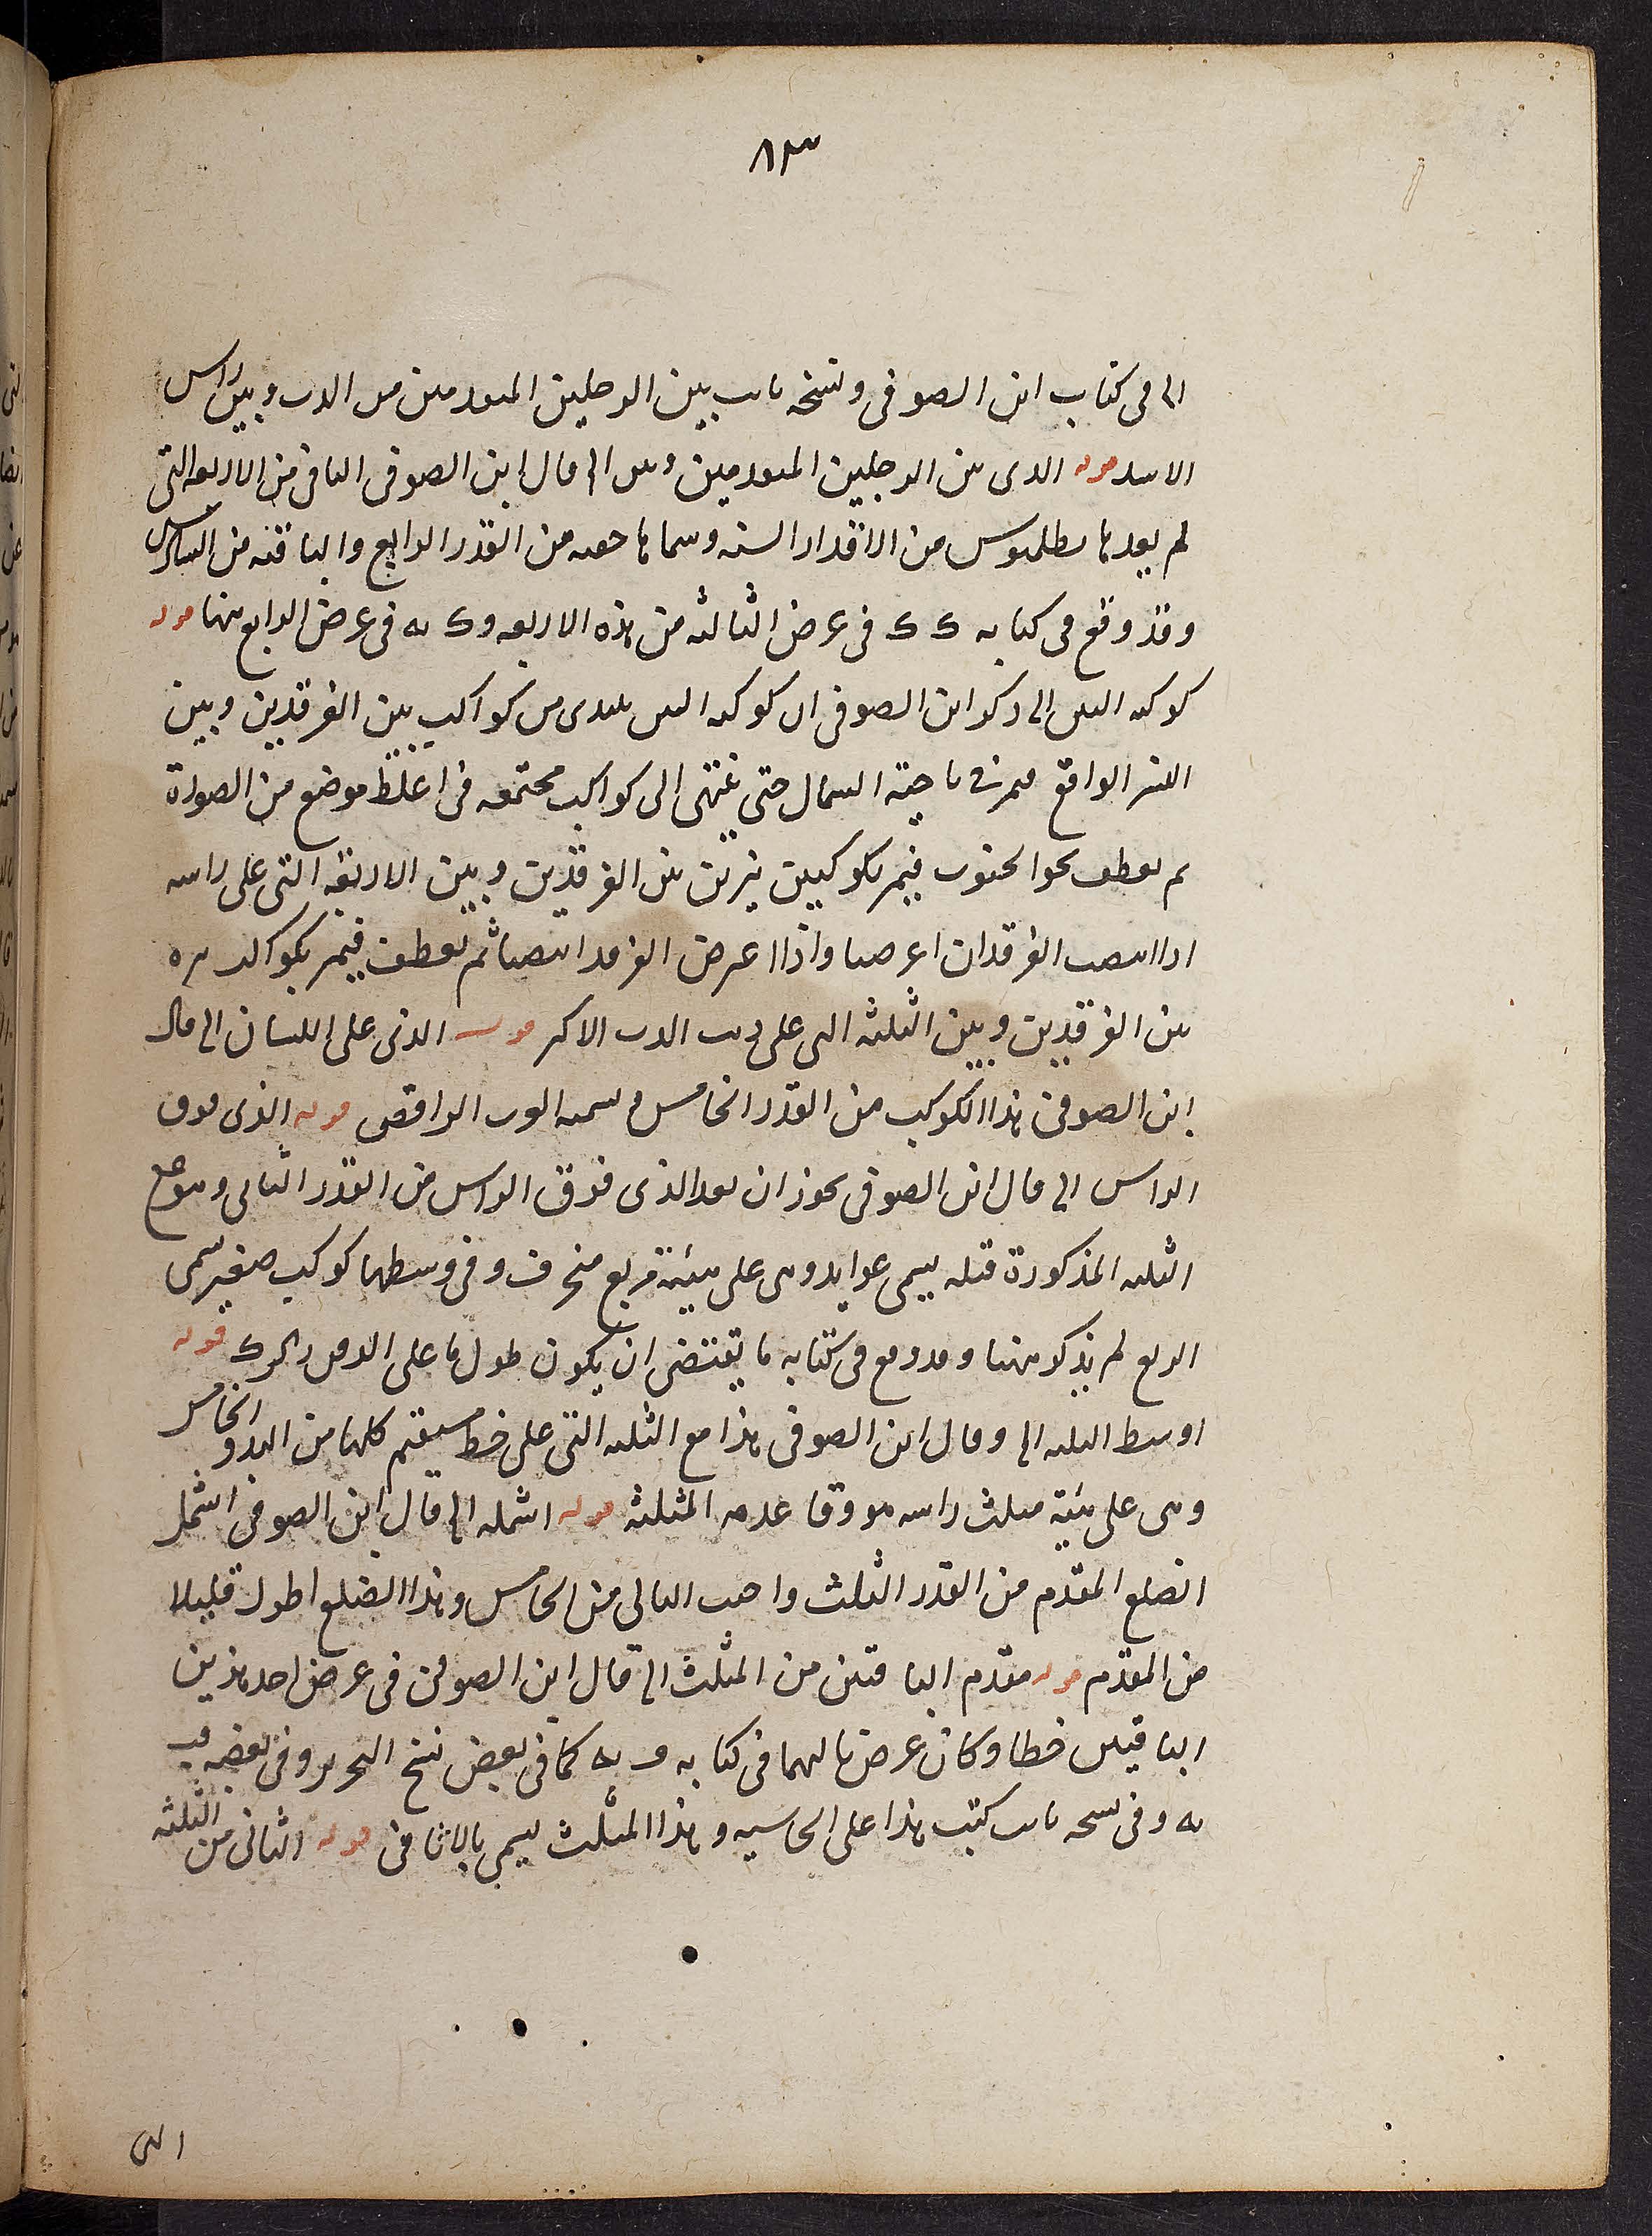 ٨٣
الى فى كتاب ابن الصوفى ونسخة ثابت بين الرجلين المتقدمتين من الدب وبين راس
الاسد قوله الذى بين الرجلين المتقدمين وبين الى قال ابن الصوفى الباقى من الاربعة التى
لم يعدها بطلميوس من الاقدار الستة وسماها خفية من القدر الرابع والباقية من السادس
وقد وقع فى كتابه ك ك فى عرض الثالثة من هذه الاربعة وك يه فى عرض الرابع منها قوله
كوكبة التنين الى ذكر ابن الصوفى ان كوكبة التنين تبتدى من كواكب بين الفرقدين وبين
النسر الواقع فيمر فى ناحية الشمال حتى ينتهى الى كواكب مجتمعة فى اغلظ موضع من الصورة
ثم يعطف نحو الجنوب فيمر بكوكبين نيرين بين الفرقدين وبين الاربعة التى على راسه
اذا انتصب الفرقدان اعرضا واذا اعرض الفرقدا انتصبا ثم يعطف فيمر بكواكب نيرة
بين الفرقدين وبين الثلثة التى على ذنب الدب الاكبر قوله الذى على اللسان الى قال
ابن الصوفى هذا الكوكب من القدر الخامس ويسميه العرب الراقص قوله الذى فوق
الراس الى قال ابن الصوفى يجوز ان يعد الذى فوق الراس من القدر الثانى وهو مع
الثلثة المذكورة قبله يسمى عوايد وهى على هيئة مربع منحرف وفى وسطها كوكب صغير سمى
الربع لم يذكر ههنا وقد وقع فى كتابه ما يقتضى ان يكون طول ما على الذقن ر الو ك قوله
اوسط الثلثة الى وقال ابن الصوفى هذا مع الثلثة التى على خط مستقيم كلها من القدر الخامس
وهى على هيئة مثلث راسه هو وقاعدته المثلثة قوله اشملة الى قال ابن الصوفى اشمل
الضلع المقدم من القدر الثلث واجنب التالى من الخامس وهذا الضلع اطول قليلا
من المقدم قوله مقدم الباقتين من المثلث الى قال ابن الصوفى فى عرض احد هذين
الباقيين خطا وكان عرض تاليهما فى كتابه ف يه كما فى بعض نسخ التحرير وفى بعضه فب
يه وفى نسخة ثابت كتب هذا على الحاشية وهذا المثلث يسمى بالاثافى قوله الثانى من الثلثة
التى